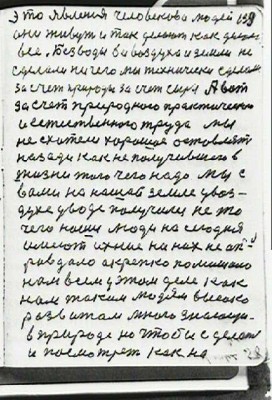 Это явления человекова людей 139
они живут и так делают как делают
все. Без воды и воздуха и земли не
сделали ничего мы технически сделали
за счет природы за счет сырья А вот
за счет природного практического
и естественного труда мы
не схители хорошая оставлять
назади как не получившего в
жизни того чего надо мы с
вами на нашей земле у воз-
духе у воде получили не то
чего наши люди на сегодня
имеют ихние на них не оп-
равдало а крепко помешало
нам всем у этом деле как
нам таким людям высоко
развитам много знающи-
в природе но чтобы сделать
и посмотреть как на